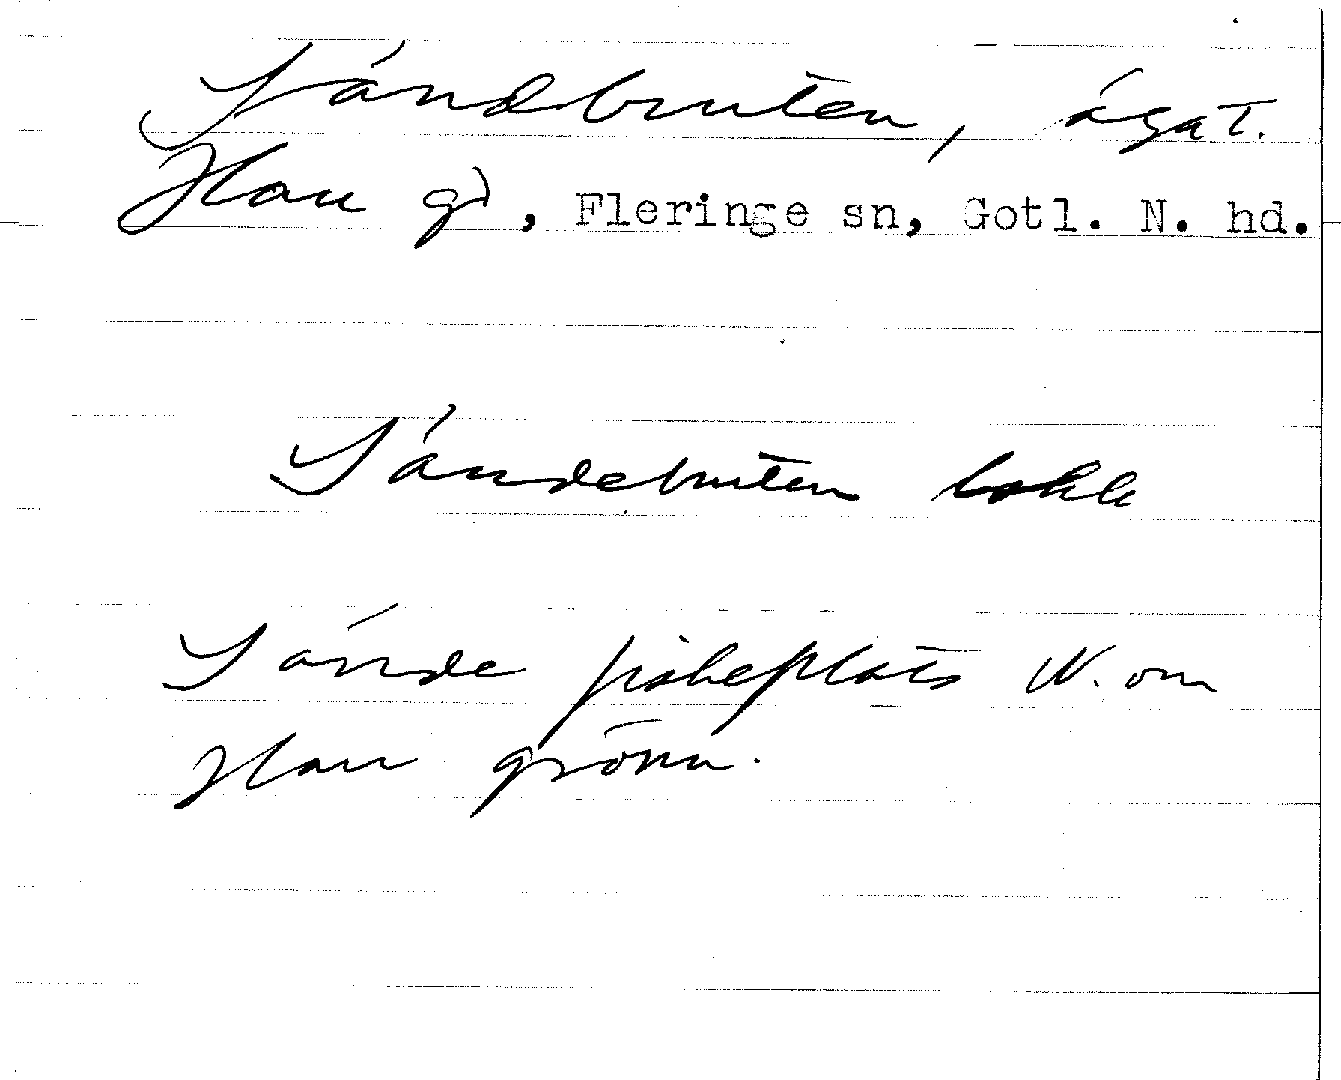 Sändbruten, ägat.
Hau gd, Fleringe sn, Gotl. N. hd.
Sändebruten
Sände fiskeplats N. om
Hau